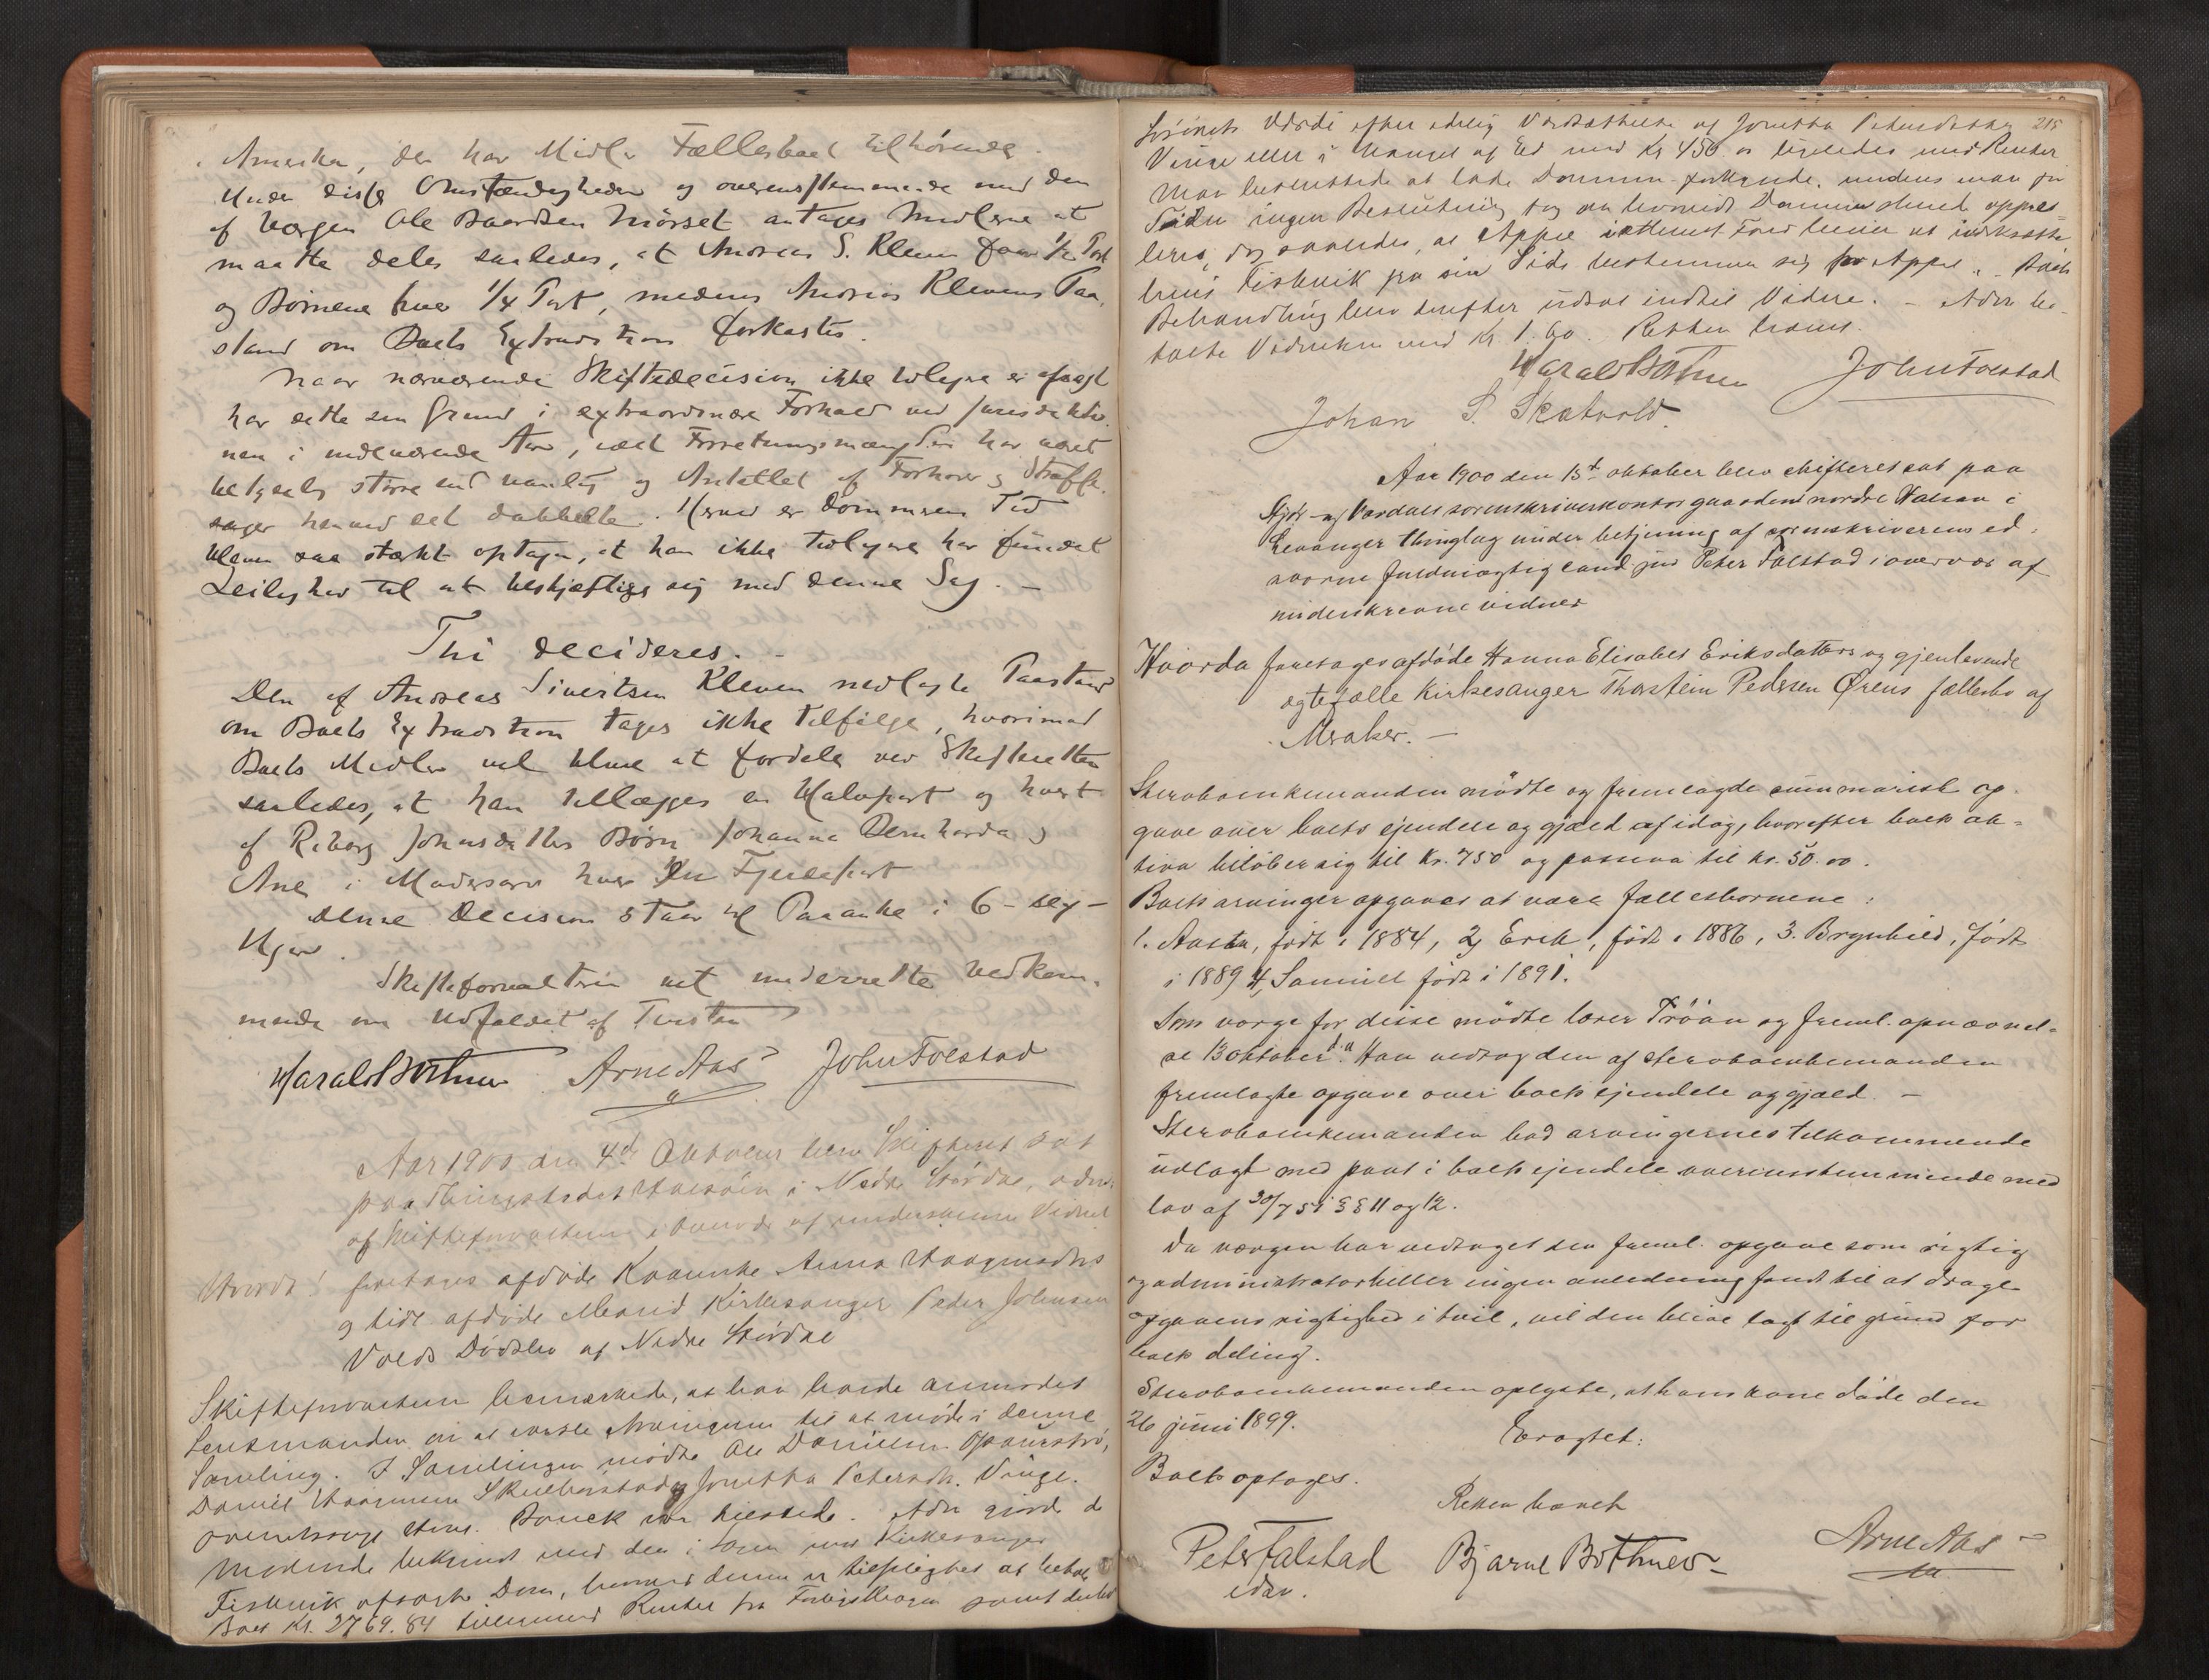 Amerika, der har Midler Fællesboet tilhørende.
Under disse Omstændigheder og overensstemmende med den
af Værgen Ole Baardsen Mørset antages Midlerne at
maatte deles saaledes, at Andreas S. Kleven faar 1/2 Part
og Børnene hver 1/4 Part, medens Andreas Klevens Paa-
stand om Boets Extradition forkastes.
Naar nærværende Skiftedecision ikke tidligere er afsagt
har dette sin Grund i extraordinære Forhold ved Jurisdiktio-
nen i indeværende Aar, idet Forretningsmængden har været
betydelig større end vanlig og Antallet af Forhørs og Straffe-
sager henved det dobbelte. Herved er Dommerens Tid
bleven saa stærkt optagen, at han ikke tidligere har fundet
Leilighed til at beskjæftige sig med denne Sag. -
Thi decideres. -
Den af Andreas Sivertsen Kleven nedlagte Paastand
om Boets Extradition tages ikke tilfølge, hvorimod
Boets Midler vil blive at fordele ved Skifteretten
saaledes, at han tillægges en Halvpart og hvert
af Reborg Johnsdatters Børn Johanna Bernharda og
Ane i Modersarv hver en Fjerdepart
Denne Decision staar til Paaanke i 6 - sex -
Uger.
Skifteforvalteren vil underrette Vedkom-
mende om Udfaldet af Tvisten
Harald Bothner Arne Aas John Folstad
Aar 1900 den 4de Oktober blev Skifteret sat
paa Thingstedet Halsøen i Nedre Stjørdal, adm.
af Skifteforvalteren i Overvær af underskrevne Vidner
Hvorda! foretages afdøde Kaarike Anna Haagensdtrs
og tidl afdøde Mand Kirkesanger Peder Johnsen
Volds Dødsbo af Nedre Stjørdal
Skifteforvalteren bemærkede, at han havde anmodet
Lensmanden om at varsle Arvingerne til at møde i denne
Samling. I Samlingen mødte Ole Danielsen
Daniel Skielborstad og Jonetta Petersdtr. Vinge.
var tilstede. Adm gjorde de
mødende bekjendt med den i Sagen mod Kirkesanger
Fiskvik afsagte Dom, hvorved denne er tilpligtet at betale
Boet Kr. 2769.84 tilligemed Renter fra Forligsklagen samt derhos
215
Værdi efter edelig Værdsættelse af Jonetta Petersdatter
Vinge eller i Mangel af Ed med Kr 450 og ligeledes med Renter
Man besluttede at lade Dommen forkynde, medens man for
Tiden ingen Beslutning tog om hvorvidt Dommen skulde appel-
leres, dog saaledes, at Appel iethvert Fald bliver at iværksætte,
hvis Fiskvik fra sin Side bestemmer sig for Appel. - Boets
Behandling blev derefter udsat indtil Videre. - Adm be-
talte Vidnerne med Kr 1.60. Retten hævet.
Harald Bothner John Folstad
Johan S. Skatvold.
Aar 1900 den 15de oktober blev skifteret sat paa
Stjør- og Værdals sorenskriverkontor gaarden nordre Halsan i
Levanger thinglag under betjening af sorenskriverens ed-
svorne fuldmægtig cand. jur Peter Falstad i overvær af
underskrevne vidner
Hvorda foretages afdøde Hanna Elisabet Eriksdatters og gjenlevende
ægtefælle Kirkesanger Thorstein Pedersen Ørens fællesbo af
Meraker. -
Stervboenkemanden mødte og fremlagde summarisk op-
gave over boets ejendele og gjæld af idag, hvorefter boets ak-
tiva beløber sig til Kr. 750 og passiva til kr. 50.00.
Boets arvinger opgaves at være fællesbørnene:
1. Aasta, født i 1884, 2, Erik, født i 1886, 3. Brynhild, født
i 1889 4, Samuel født i 1891.
Som værge for disse mødte lærer Trøan og freml. opnævnel-
se 13 oktober d.a. Han vedtog den af stervboenkemanden
fremlagte opgave over boets ejendele og gjæld. -
Stervboenkemanden bad arvingernes tilkommende
udlagt med pant i boets ejendele overensstemmende med
lov af 30/7 51 §§ 11 og 12.
Da værgen har vedtaget den freml. opgave som rigtig
og administrator heller ingen anledning fandt til at drage
opgavens rigtighed i tvil, vil den blive lagt til grund for
boets deling.
Stervboenkemanden oplyste, at hans kone døde den
26 juni 1899.
Eragtet:
Boet optages.
Retten hævet
Peter Falstad Bjarne Bothner Arne Aas
edsv.